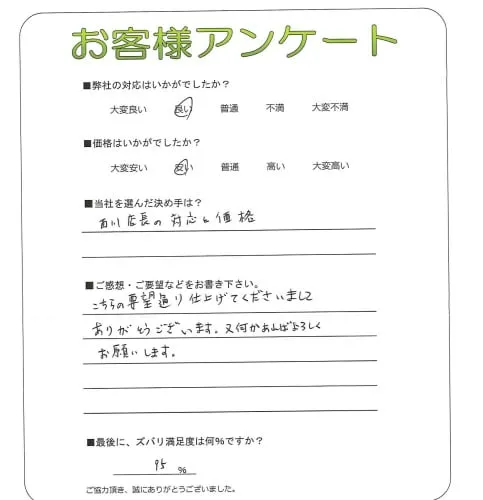 お客様アンケート
■弊社の対応はいかがでしたか?
大変良い 良い 普通 不満 大変不満
■価格はいかがでしたか?
大変安い 安い 普通 高い 大変高い
■当社を選んだ決め手は?
西川店長の対応と価格
■ご感想・ご要望などをお書き下さい。
こちらの要望通り仕上げてくださいまして
ありがとうございます。又何かあればよろしく
お願いします。
■最後に、ズバリ満足度は何%ですか?
95 %
ご協力頂き、誠にありがとうございました。